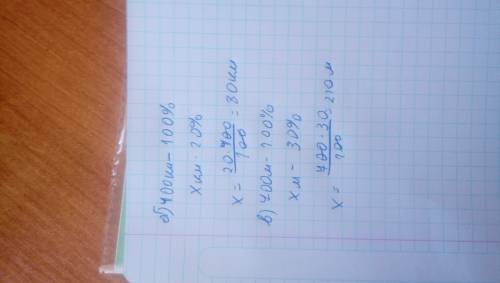 б) 400км - 100%
х км - 20%
х = 20·400/100 = 80км
в) 700м - 100%
х м - 30%
х = 700·30/100 = 210м